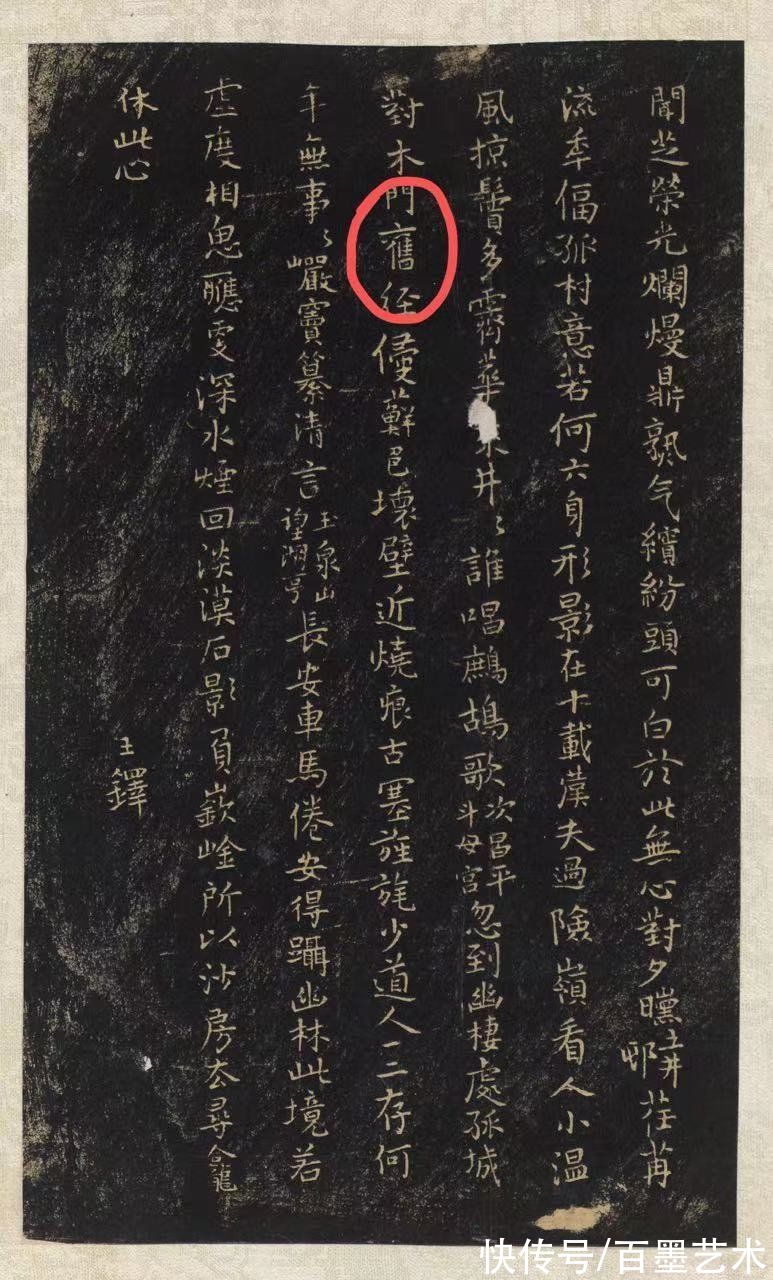 聞芝榮光爛熳鼎氣繽紛頭可白於此無心對夕曭
流年偪孤村意若何六身形影在十載漢夫過險嶺看人小溫
風掠鬢多霽華井〻誰唱鷓鴣歌次昌平斗母宮忽到幽棲處孤城
對木門舊径侵蘚邑壞壁近燒痕古塞旌旄少道人三存何
年無事〻巖竇纂清言玉泉山望湖亭長安車馬倦安得躡幽林此境若
虛度相思應更深水煙回淡漠石影負嶔崟所以沙房去尋龕
休此心
王鐸
快传号/百墨艺术